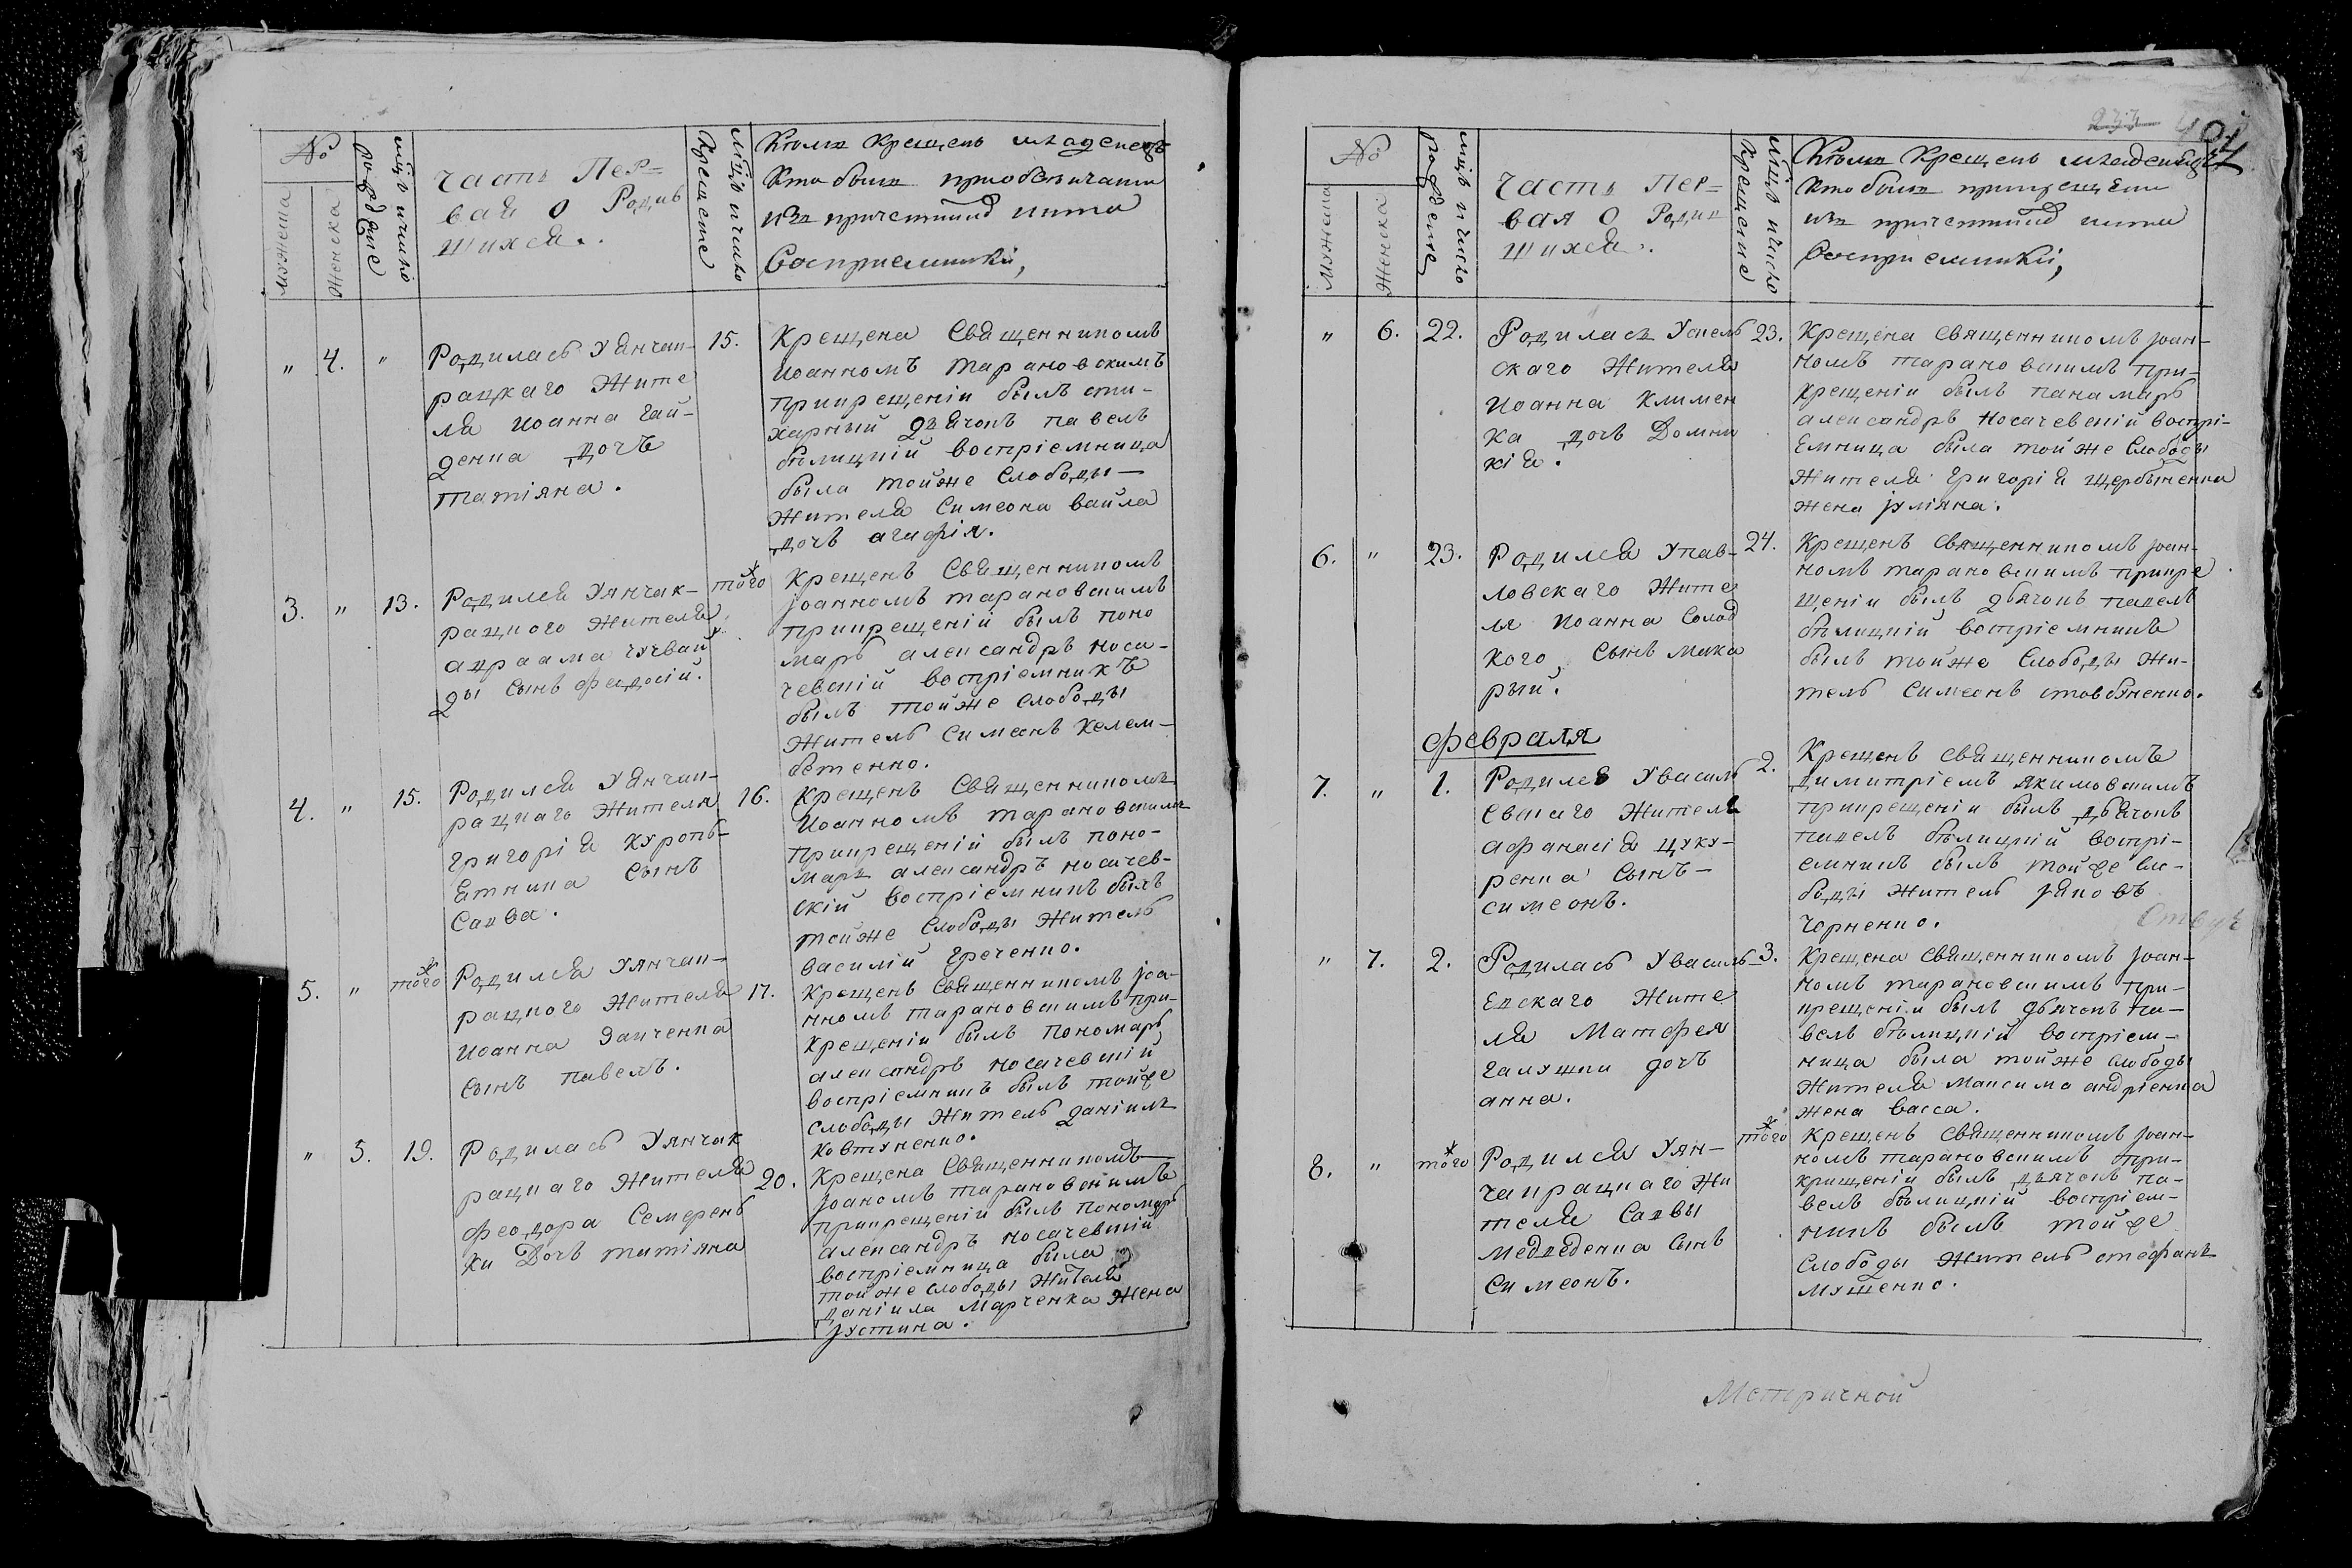 №
мужеска
Женска
мцъ и число
рождение
часть Пер=
вая о Родив
шихся.
мцъ и число
Крещение
Кѣмъ Крещенъ младенецъ
Кто былъ при
изъ причетниковъ и кто
Восприемники,
" 4. "
Родилась Уянчак-
рацкаго Жите
ля Иоанна Гай-
денка дочь
татіяна.
15.
Крещена Священникомъ
Иоанномъ Тарановскимъ
прикрещеніи былъ сти-
харный дьячокъ павелъ
бѣлицкій воспріемница
была тойже Слободы-
Жителя Симеона вайла
дочь агафія.
3. " 13.
Родился Уянчак-
рацкого Жителя
авраама
ды Сынъ федосій.
того ж
Крещенъ Священникомъ
Іоанномъ тарановскимъ
прикрещеній былъ поно
марь александръ носа-
чевскій воспріемникъ
былъ тойже слободы
Житель Симеонъ Келем-
бетенко.
4. " 15.
Родился Уянчак-
рацкаго Жителя
григорія Куроп-
Етника Сынъ
Савва.
16.
Крещенъ Священникомъ
Иоанномъ тарановскимъ
прикрещеній былъ поно-
марь александръ носачев-
скій воспріемникъ былъ
тойже Слободы Житель
василій Греченко.
5. " того ж
Родился Уянчак-
рацкого Жителя
Иоанна Заиченка
Сынъ павелъ.
17.
Крещенъ Священникомъ Іоа-
нномъ тарановскимъ при-
крещеніи былъ пономарь
александръ носачевскій
воспріемникъ былъ тойже
слободы Житель даніилъ
Ковтуненко.
" 5. 19.
Родилась Уянчак
рацкаго Жителя
феодора Семерен
ки Дочь татіяна
20.
Крещена Священникомъ
Іоаномъ тарановскимъ
прикрещеній былъ пономарь
александръ носачевскій
воспріемница была
тойже слободы Жителя
даніила Марченка Жена
Іустина.
№
Мужеска
Женска
мцъ и число
рождение
часть Пер=
вая о Родив
шихся.
мцъ и число
Крещение
Кѣмъ Крещенъ младенецъ
Кто былъ прикрещении
изъ причетниковъ и кто
Восприемники,
" 6. 22.
Родилась Успен
скаго Жителя
Иоанна Климен
ка дочь Домни
кія.
23.
Крещена Священникомъ Іоан-
номъ тарановскимъ при-
крещеніи былъ панамарь
александръ Носачевскій воспрі-
Емница была тойже Слободы
Жителя григорія щербыненка
жена Іуліяна.
6. " 23.
Родился Упав-
ловскаго Жите
ля Иоанна Солод
кого Сынъ мака
рый.
24.
Крещенъ священникомъ Іоан-
номъ тарановскимъ прикре
щеніи былъ дьячокъ павелъ
бѣлицкій воспріемникъ
былъ тойже Слободы Жи-
тель Симеонъ стовбуненко.
февраля
7. " 1.
Родился Увасиль
Евскаго Жителя
афанасія цуку-
ренка Сынъ-
симеонъ.
2.
Крещенъ священникомъ
димитріемъ якимовскимъ
прикрещеніи былъ дьячокъ
павелъ бѣлицкій воспрі-
емникъ былъ тойже сло-
боды Житель Іяковъ
чорненко.
" 7. 2.
Родилась Увасиль-
Евскаго Жите
ля Матфея
галушки дочь
анна.
3.
Крещена Священникомъ Іоан-
номъ тарановскимъ при-
крещеніи былъ дьячокъ па-
велъ бѣлицкій воспріем-
ница была тойже слободы
Жителя Максима андріенка
жена васса.
8. " того ж
Родился Уян-
чакрацкаго Жи
теля Саввы
медведенка Сынъ
Симеонъ.
того ж
Крещенъ Священникомъ Іоан-
номъ тарановскимъ при-
крищеніи былъ дьячокъ па-
велъ бѣлицкій воспріем-
никъ былъ тойже
Слободы Житель стефанъ
мушенко.
Метричной